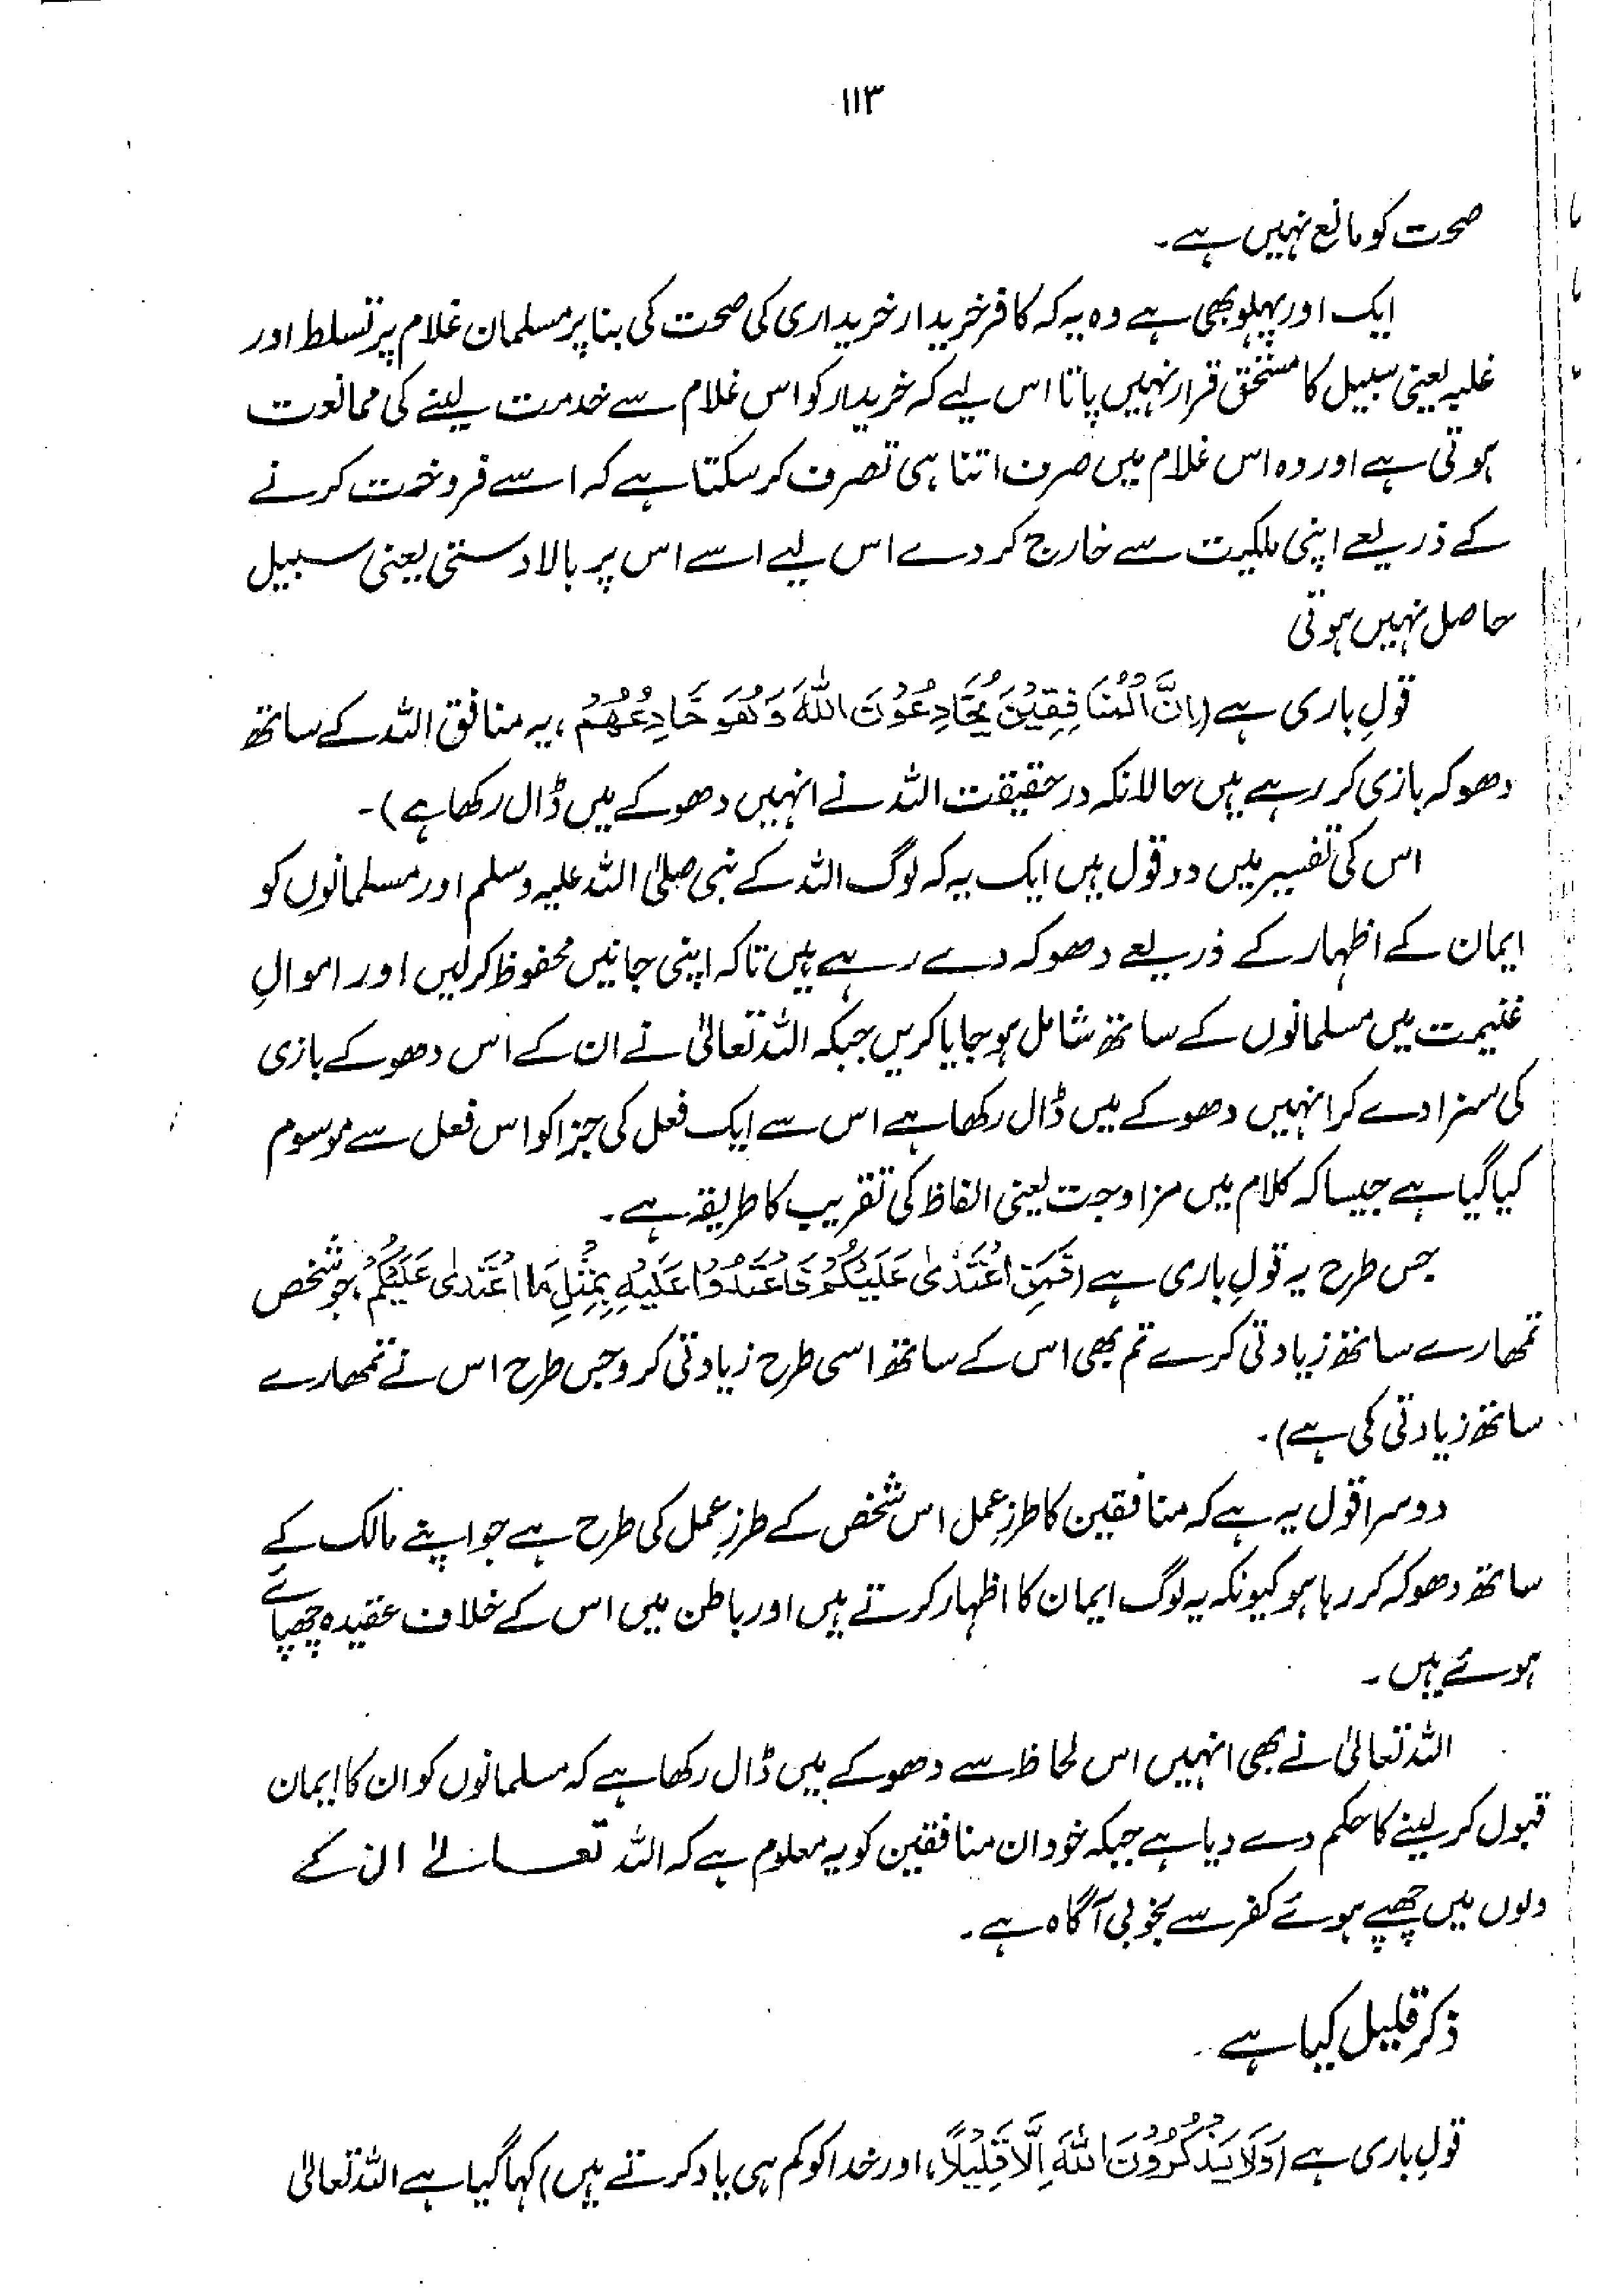 ۱۱۳
صحت کو مانع نہیں ہے۔
ایک اور پہلو بھی ہے وہ یہ کہ کافر خریدار خریداری کی صحت کی بنا پر مسلمان غلام پر تسلط اور
غلبہ یعنی سبیل کا مستحق قرار نہیں پاتا اس لیے کہ خریدار کو اس غلام سے خدمت لینے کی ممانعت
ہوتی ہے اور وہ اس غلام میں صرف اتنا ہی تصرف کر سکتا ہے کہ اسے فروخت کرنے
کے ذریعے اپنی ملکیت سے خارج کر دے اس لیے اسے اس پر بالادستی یعنی سبیل
حاصل نہیں ہوتی
قولِ باری ہے (اِنَّ الْمُنَافِقِيْنَ يُخَادِعُوْنَ اللّٰهَ وَهُوَ خَادِعُهُمْ، یہ منافق اللہ کے ساتھ
دھوکہ بازی کر رہے ہیں حالانکہ درحقیقت اللہ نے انہیں دھوکے میں ڈال رکھا ہے)۔
اس کی تفسیر میں دو قول ہیں ایک یہ کہ لوگ اللہ کے نبی صلی اللہ علیہ وسلم اور مسلمانوں کو
ایمان کے اظہار کے ذریعے دھوکہ دے رہے ہیں تاکہ اپنی جانیں محفوظ کر لیں اور اموالِ
غنیمت میں مسلمانوں کے ساتھ شامل ہو جایا کریں جبکہ اللہ تعالیٰ نے ان کے اس دھوکے بازی
کی سزا دے کر انہیں دھوکے میں ڈال رکھا ہے اس سے ایک فعل کی جزا کو اس فعل سے موسوم
کیا گیا ہے جیسا کہ کلام میں مزاوجت یعنی الفاظ کی تقریب کا طریقہ ہے۔
جس طرح یہ قولِ باری ہے (فَمَنِ اعْتَدٰى عَلَيْكُمْ فَاعْتَدُوْا عَلَيْهِ بِمِثْلِ مَا اعْتَدٰى عَلَيْكُمْ، جو شخص
تمھارے ساتھ زیادتی کرے تم بھی اس کے ساتھ اسی طرح زیادتی کرو جس طرح اس نے تمھارے
ساتھ زیادتی کی ہے)۔
دوسرا قول یہ ہے کہ منافقین کا طرزِ عمل اس شخص کے طرزِ عمل کی طرح ہے جو اپنے مالک کے
ساتھ دھوکہ کر رہا ہو کیونکہ یہ لوگ ایمان کا اظہار کرتے ہیں اور باطن میں اس کے خلاف عقیدہ چھپائے
ہوئے ہیں۔
اللہ تعالیٰ نے بھی انہیں اس لحاظ سے دھوکے میں ڈال رکھا ہے کہ مسلمانوں کو ان کا ایمان
قبول کر لینے کا حکم دے دیا ہے جبکہ خود ان منافقین کو یہ معلوم ہے کہ اللہ تعالےٰ ان کے
دلوں میں چھپے ہوئے کفر سے بخوبی آگاہ ہے۔
ذکر قلیل کیا ہے
قولِ باری ہے (وَلَا يَذْكُرُوْنَ اللّٰهَ اِلَّا قَلِيْلًا، اور خدا کو کم ہی یاد کرتے ہیں) کہا گیا ہے اللہ تعالیٰ